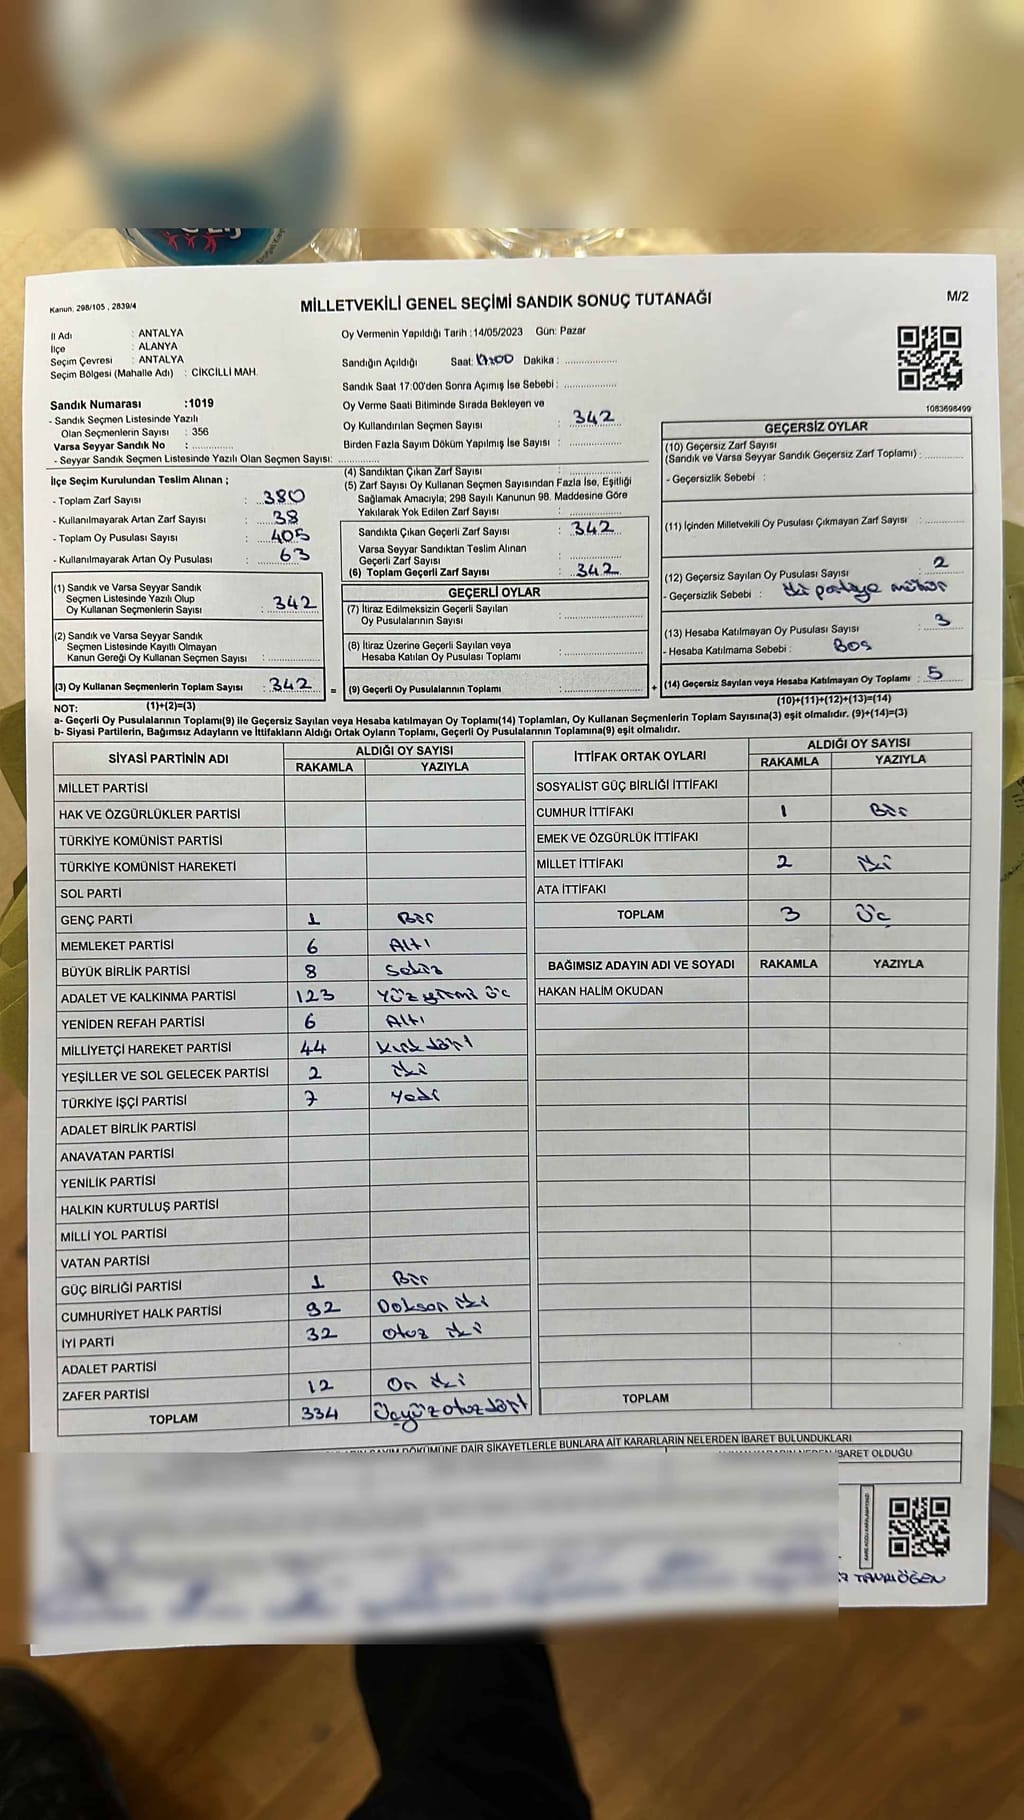 Kanun, 298/105 , 2839/4
MİLLETVEKİLİ GENEL SEÇİMİ SANDIK SONUÇ TUTANAĞI
M/2
İl Adı : ANTALYA
İlçe : ALANYA
Seçim Çevresi : ANTALYA
Seçim Bölgesi (Mahalle Adı) : CİKCİLLİ MAH.
Sandık Numarası :1019
- Sandık Seçmen Listesinde Yazılı
Olan Seçmenlerin Sayısı : 356
Varsa Seyyar Sandık No :
- Seyyar Sandık Seçmen Listesinde Yazılı Olan Seçmen Sayısı:
Oy Vermenin Yapıldığı Tarih :14/05/2023 Gün: Pazar
Sandığın Açıldığı Saat: 17:00 Dakika :
Sandık Saat 17:00'den Sonra Açımış İse Sebebi :
Oy Verme Saati Bitiminde Sırada Bekleyen ve
Oy Kullandırılan Seçmen Sayısı : 342
Birden Fazla Sayım Döküm Yapılmış İse Sayısı :
1083698499
İlçe Seçim Kurulundan Teslim Alınan ;
- Toplam Zarf Sayısı : 380
- Kullanılmayarak Artan Zarf Sayısı : 38
- Toplam Oy Pusulası Sayısı : 405
- Kullanılmayarak Artan Oy Pusulası : 63
(1) Sandık ve Varsa Seyyar Sandık
Seçmen Listesinde Yazılı Olup
Oy Kullanan Seçmenlerin Sayısı : 342
(2) Sandık ve Varsa Seyyar Sandık
Seçmen Listesinde Kayıtlı Olmayan
Kanun Gereği Oy Kullanan Seçmen Sayısı :
(3) Oy Kullanan Seçmenlerin Toplam Sayısı : 342 =
(1)+(2)=(3)
(4) Sandıktan Çıkan Zarf Sayısı :
(5) Zarf Sayısı Oy Kullanan Seçmen Sayısından Fazla İse, Eşitliği
Sağlamak Amacıyla; 298 Sayılı Kanunun 98. Maddesine Göre
Yakılarak Yok Edilen Zarf Sayısı :
Sandıkta Çıkan Geçerli Zarf Sayısı : 342
Varsa Seyyar Sandıktan Teslim Alınan
Geçerli Zarf Sayısı :
(6) Toplam Geçerli Zarf Sayısı : 342
GEÇERLİ OYLAR
(7) İtiraz Edilmeksizin Geçerli Sayılan
Oy Pusulalarının Sayısı :
(8) İtiraz Üzerine Geçerli Sayılan veya
Hesaba Katılan Oy Pusulası Toplamı :
(9) Geçerli Oy Pusulalarının Toplamı : +
GEÇERSİZ OYLAR
(10) Geçersiz Zarf Sayısı
(Sandık ve Varsa Seyyar Sandık Geçersiz Zarf Toplamı) :
- Geçersizlik Sebebi :
(11) İçinden Milletvekili Oy Pusulası Çıkmayan Zarf Sayısı :
(12) Geçersiz Sayılan Oy Pusulası Sayısı : 2
- Geçersizlik Sebebi : iki partiye mühür
(13) Hesaba Katılmayan Oy Pusulası Sayısı : 3
- Hesaba Katılmama Sebebi : Boş
(14) Geçersiz Sayılan veya Hesaba Katılmayan Oy Toplamı : 5
(10)+(11)+(12)+(13)=(14)
NOT:
a- Geçerli Oy Pusulalarının Toplamı(9) ile Geçersiz Sayılan veya Hesaba katılmayan Oy Toplamı(14) Toplamları, Oy Kullanan Seçmenlerin Toplam Sayısına(3) eşit olmalıdır. (9)+(14)=(3)
b- Siyasi Partilerin, Bağımsız Adayların ve İttifakların Aldığı Ortak Oyların Toplamı, Geçerli Oy Pusulalarının Toplamına(9) eşit olmalıdır.
SİYASİ PARTİNİN ADI ALDIĞI OY SAYISI
RAKAMLA YAZIYLA
MİLLET PARTİSİ
HAK VE ÖZGÜRLÜKLER PARTİSİ
TÜRKİYE KOMÜNİST PARTİSİ
TÜRKİYE KOMÜNİST HAREKETİ
SOL PARTİ
GENÇ PARTİ 1 Bir
MEMLEKET PARTİSİ 6 Altı
BÜYÜK BİRLİK PARTİSİ 8 Sekiz
ADALET VE KALKINMA PARTİSİ 123 Yüz yirmi üç
YENİDEN REFAH PARTİSİ 6 Altı
MİLLİYETÇİ HAREKET PARTİSİ 44 Kırk dört
YEŞİLLER VE SOL GELECEK PARTİSİ 2 iki
TÜRKİYE İŞÇİ PARTİSİ 7 Yedi
ADALET BİRLİK PARTİSİ
ANAVATAN PARTİSİ
YENİLİK PARTİSİ
HALKIN KURTULUŞ PARTİSİ
MİLLİ YOL PARTİSİ
VATAN PARTİSİ
GÜÇ BİRLİĞİ PARTİSİ 1 Bir
CUMHURİYET HALK PARTİSİ 92 Doksan iki
İYİ PARTİ 32 Otuz iki
ADALET PARTİSİ
ZAFER PARTİSİ 12 On iki
TOPLAM 334 Üçyüz otuz dört
İTTİFAK ORTAK OYLARI ALDIĞI OY SAYISI
RAKAMLA YAZIYLA
SOSYALİST GÜÇ BİRLİĞİ İTTİFAKI
CUMHUR İTTİFAKI 1 Bir
EMEK VE ÖZGÜRLÜK İTTİFAKI
MİLLET İTTİFAKI 2 iki
ATA İTTİFAKI
TOPLAM 3 Üç
BAĞIMSIZ ADAYIN ADI VE SOYADI RAKAMLA YAZIYLA
HAKAN HALİM OKUDAN
TOPLAM
DÖKÜMÜNE DAİR ŞİKAYETLERLE BUNLARA AİT KARARLARIN NELERDEN İBARET BULUNDUKLARI
İBARET OLDUĞU